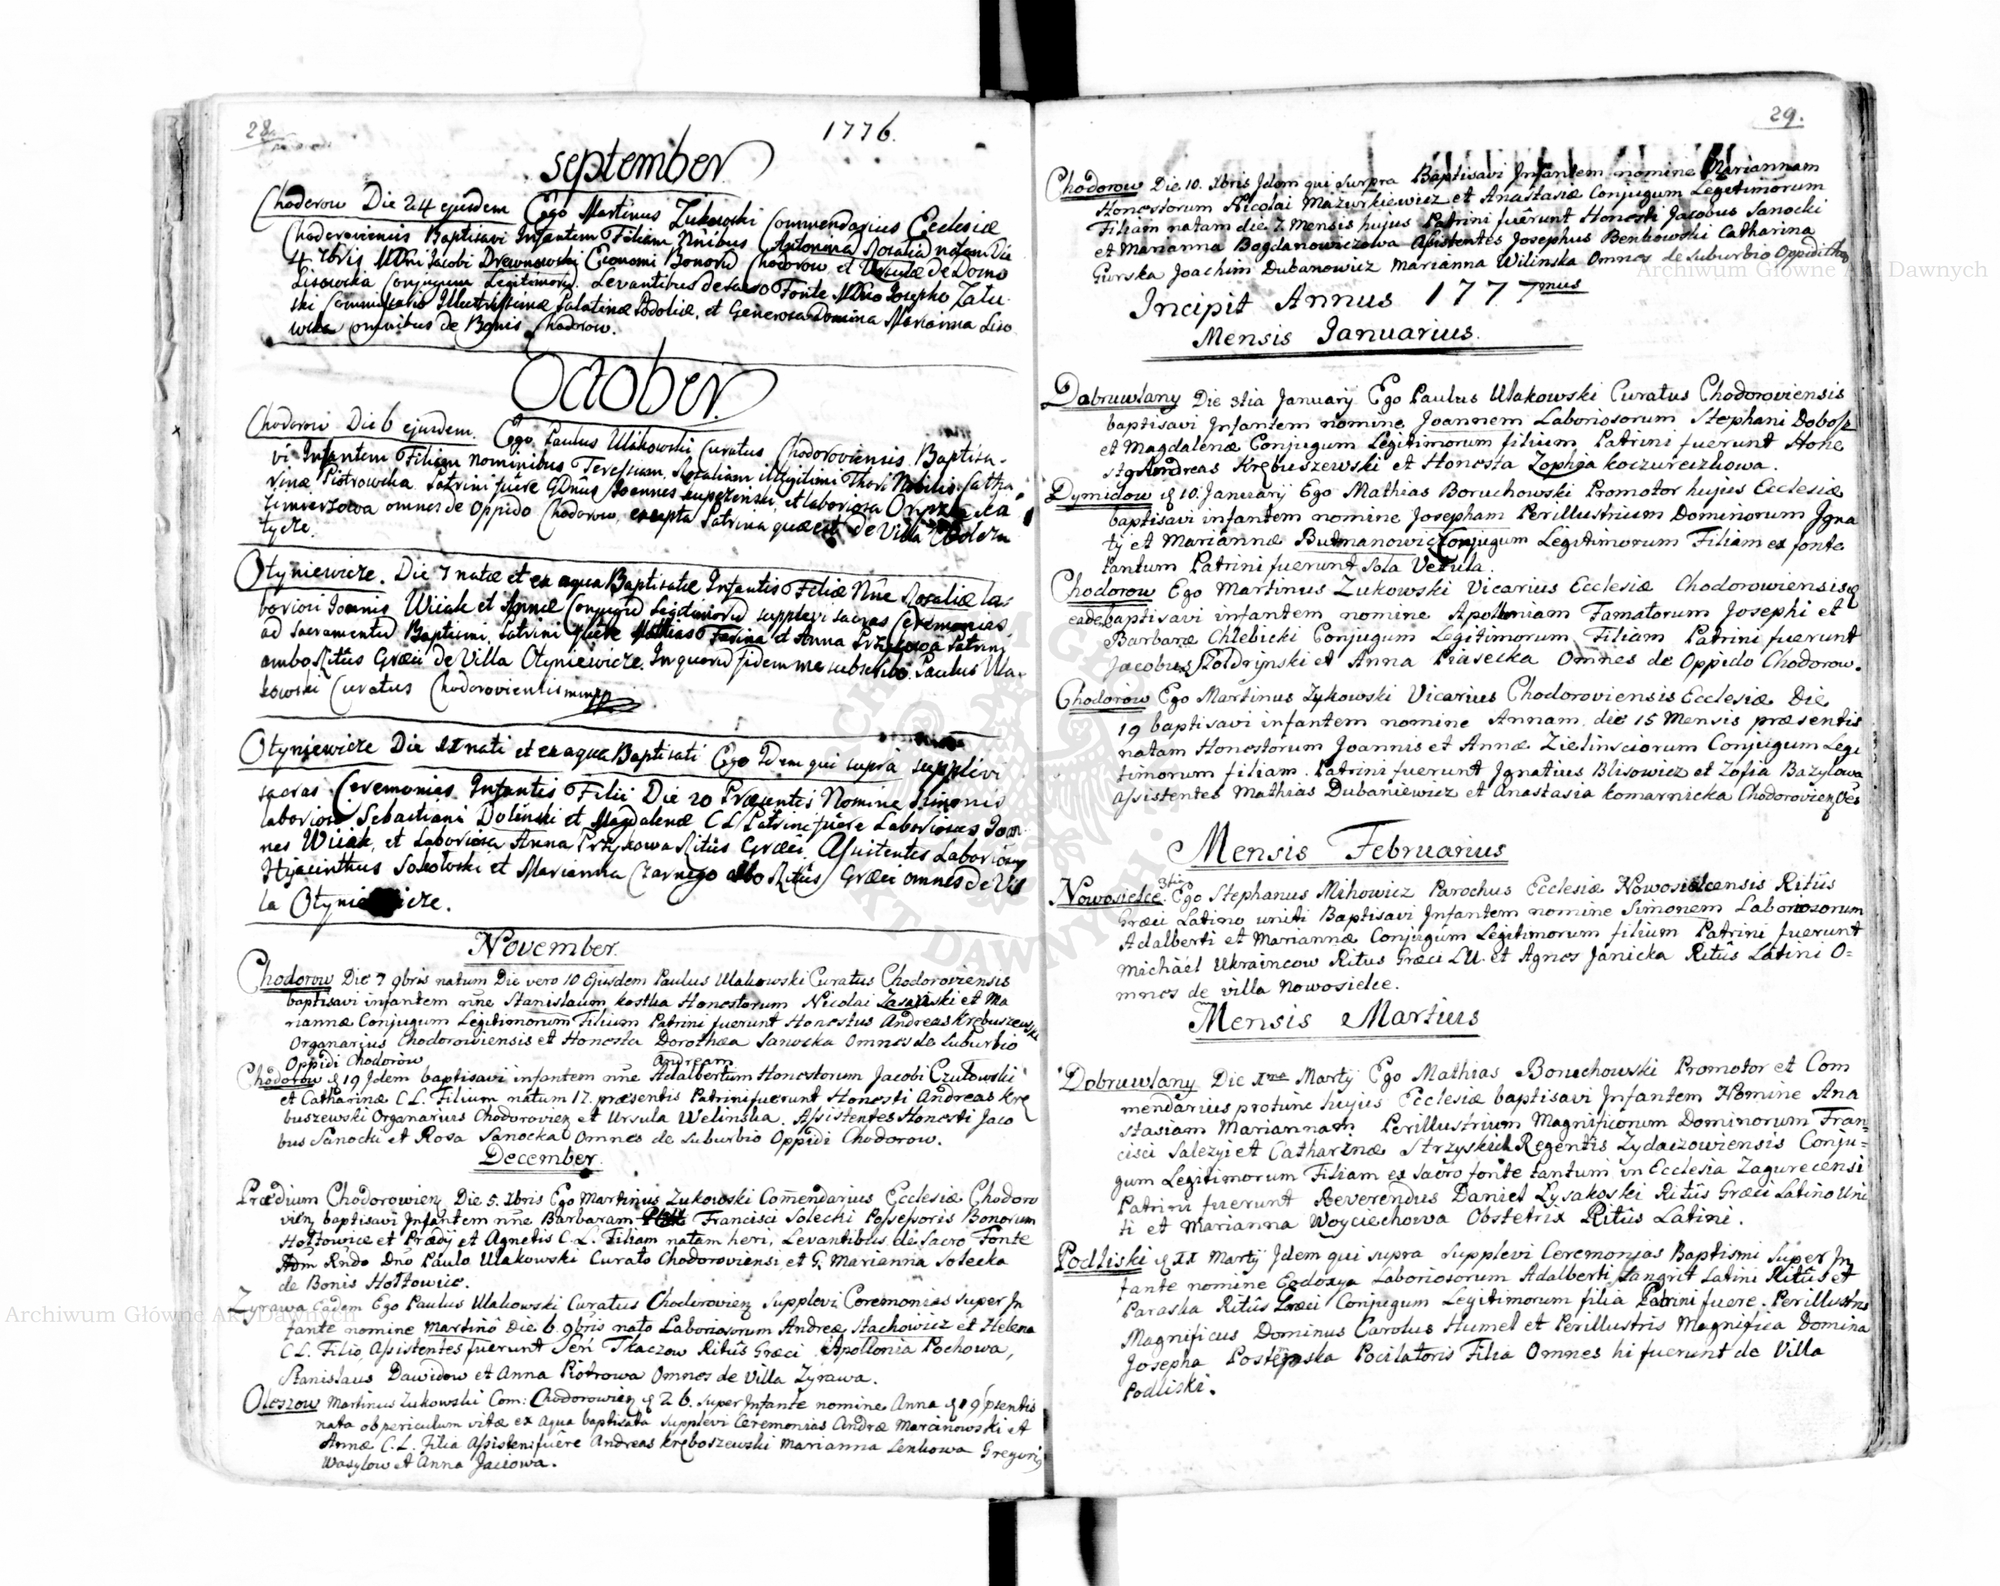 28.
1776.
September
Chodorow Die 24 ejusdem Ego Martinus Zukowski Commendarius Ecclesiæ
Chodoroviensis Baptisavi Infantem Filiam Nnibus Antonina Rosalia natam Die
4 7bris Jacobi Drewnowski Economi Bonorũ Chodorow et Ursulæ de Domo
Lisowska Conjugum Legitimorũ. Levantibus de sacro Fonte Josepho Zalu-
ski Commissario Illustrissimæ Palatinæ Podoliæ, et Generosa Domina Marianna Liso
wska omnibus de Bonis Chodorow.
October
Chodorow Die 6 ejusdem. Ego Paulus Ulakowski Curatus Chodoroviensis Baptisa-
vi Infantem Filiam Nominibus Teressiam, Rosaliam illegitimi Thori Nobilis Catha
rinæ Piotrowska. Patrini fuêre Joannes et laboriosa
omnes de Oppido Chodorow, excepta Patrina quæ est de Villa
tycze.
Otyniewicze. Die 7 natæ et ex aqua Baptisatæ Infantis Filiæ Nñe Rosaliæ la-
boriosi Joannis Wiiak et Annæ Conjugũ Legitimorũ supplevi sacras Ceremonias
ad Sacramentũ Baptismi, Patrini fuêre Mathias Ferina et Anna Przykowa Patrini
ambo Ritûs Græci de Villa Otyniewicze. In quorũ fidem me subscribo Paulus Ula-
kowski Curatus Chodoroviensis mmpp
Otyniewicze Die nati et ex aqua Baptisati Ego Idem qui supra supplevi
sacras Ceremonias Infantis Filii Die 20 Præsentis Nomine Simonis
laboriosi Sebastiani Dolinski et Magdalenæ C L Patrini fuêre Laboriosus Joan
nes Wiiak, et Laboriosa Anna Przykowa Ritûs Græci. Assistentes Laboriosus
Hyacinthus Sokolowski et Marianna Czarnego Ritûs Græci omnes de Vil
la Otyniewicze.
November.
Chodorow Die 7 9bris natum Die vero 10 Ejusdem Paulus Ulakowski Curatus Chodoroviensis
baptisavi infantem nñe Stanislaum kostka Honestorum Nicolai et Ma
riannæ Conjugum Legitimorum Filium Patrini fuerunt Honestus Andreas Krębuszewski
Organarius Chodoroviensis et Honesta Dorothea Sanocka Omnes de Suburbio
Oppidi Chodorow
Andream
Chodorow 19 Idem baptisavi infantem nñe Adalbertum Honestorum Jacobi Czulowski
et Catharinæ C.L. Filium natum 17. præsentis Patrini fuerunt Honesti Andreas Krę
buszewski Organarius Chodorovien et Ursula Welinska. Assistentes Honesti Jaco
bus Sanocki et Rosa Sanocka Omnes de Suburbio Oppidi Chodorow.
December.
Prædium Chodorowien Die 5. Xbris Ego Martinus Zukowski Comẽndarius Ecclesiæ Chodoro
vien baptisavi Infantem nñe Barbaram Francisci Solecki Possessoris Bonorum
Hołtowice et Prædÿ et Agnetis C.L. Filiam natam heri, Levantibus de Sacro Fonte
Rñdo Dño Paulo Ulakowski Curato Chodoroviensi et G. Marianna Solecka
de Bonis Hołtowice.
Zyrawa Eadem Ego Paulus Ulakowski Curatus Chodorovien Supplevi Ceremonias super In
fante nomine Martinô Die 6. 9bris nato Laboriosorum Andreæ Stachowicz et Helena
C.L. Filio, Assistentes fuerunt Seń Tkaczow Ritûs Græci Apollonia Pochowa,
Stanislaus Dawidow et Anna Piotrowa Omnes de Villa Zyrawa.
Oleszow Martinus Zukowski Com: Chodorowien 26. super Infante nomine Anna 19 psentis
nata ob periculum vitæ ex aqua baptisata supplevi Ceremonias Andreæ Marcinowski et
Annæ C.L. Filia Assisten: fuêre Andreas kręboszewski Marianna Senkowa Gregori9
Wasylow et Anna Jaciowa.
29.
Chodorow Die 10. Xbris Idem qui surpra Baptisavi Infantem nomine Mariannam
Honestorum Nicolai Mazurkiewicz et Anastasiæ Conjugum Legitimorum
Filiam natam die 7 Mensis hujus Patrini fuerunt Honesti Jacobus Sanocki
et Marianna Bogdanowiczowa Assistentes Josephus Benkowski Catharina
Gurska Joachim Dubanowicz Marianna Wilinska Omnes de Suburbio Oppidi
Incipit Annus 1777mus
Mensis Januarius.
Dobruwlany Die 3tia Januarÿ Ego Paulus Ulakowski Curatus Chodoroviensis
baptisavi Infantem nomine Joannem Laboriosorum Stephani Dobosz
et Magdalenæ Conjugum Legitimorum filium, Patrini fuerunt Hone
stg Andreas Krębuszewski et Honesta Zophia koczureczkowa.
Dymidow 10. Januarÿ Ego Mathias Boruchowski Promotor hujus Ecclesiæ
baptisavi infantem nomine Josepham Perillustrium Dominorum Igna
tÿ et Mariannæ Butmanowicz Conjugum Legitimorum Filiam ex fonte
tantum Patrini fuerunt Sola Vetula.
Chodorow Ego Martinus Zukowski Vicarius Ecclesiæ Chodorowiensis
eadem baptisavi infantem nomine Apolloniam Famatorum Josephi et
Barbaræ Chlebicki Conjugum Legitimorum Filiam Patrini fuerunt
Jacobus Szoldrynski et Anna Piasecka Omnes de Oppido Chodorow.
Chodorow Ego Martinus Zykowski Vicarius Chodoroviensis Ecclesiæ Die
19 baptisavi infantem nomine Annam die 15 Mensis præsentis
natam Honestorum Joannis et Annæ Zielinsciorum Conjugum Legi
timorum filiam. Patrini fuerunt Ignatius Blisowicz et Zofia Bazylowa
Assistentes Mathias Dubaniewicz et Anastasia komarnicka Chodorovien
Mensis Februarius
Nowosielce 3tia Ego Stephanus Mihowicz Parochus Ecclesiæ Nowosielcensis Ritûs
Græci Latino uniti Baptisavi Infantem nomine Simonem Laboriosorum
Adalberti et Mariannæ Conjugum Legitimorum filium Patrini fuerunt
Michael Ukraincow Ritus Græci L.U. et Agnes Janicka Ritûs Latini O=
mnes de villa Nowosielce.
Mensis Martius
Dobruwlany Die Xma Martÿ Ego Mathias Boruchowski Promotor et Com
mendarius protunc hujus Ecclesiæ baptisavi Infantem Nomine Ana
stasiam Mariannam Perillustrium Magnificorum Dominorum Fran=
cisci Salezyi et Catharinæ Strzyskich Regentis Zydaczowiensis Conju=
gum Legitimorum Filiam ex sacro fonte tantum in Ecclesia Zagurecensi
Patrini fuerunt Reverendus Daniel Lysakoski Ritûs Græci Latino Uni
ti et Marianna Woyciechowa Obstetrix Ritûs Latini.
Podliski XX Martÿ Idem qui supra Supplevi Ceremonias Baptismi Super In
fante nomine Eudoxya Laboriosorum Adalberti Langret Latini Ritûs et
Paraska Ritûs Græci Conjugum Legitimorum filia Patrini fuere. Perillustris
Magnificus Dominus Carolus Humel et Perillustris Magnifica Domina
Josepha Postępska Pocilatoris Filia Omnes hi fuerunt de Villa
Podliski.
Archiwum Główne Akt Dawnych
Archiwum Główne Akt Dawnych